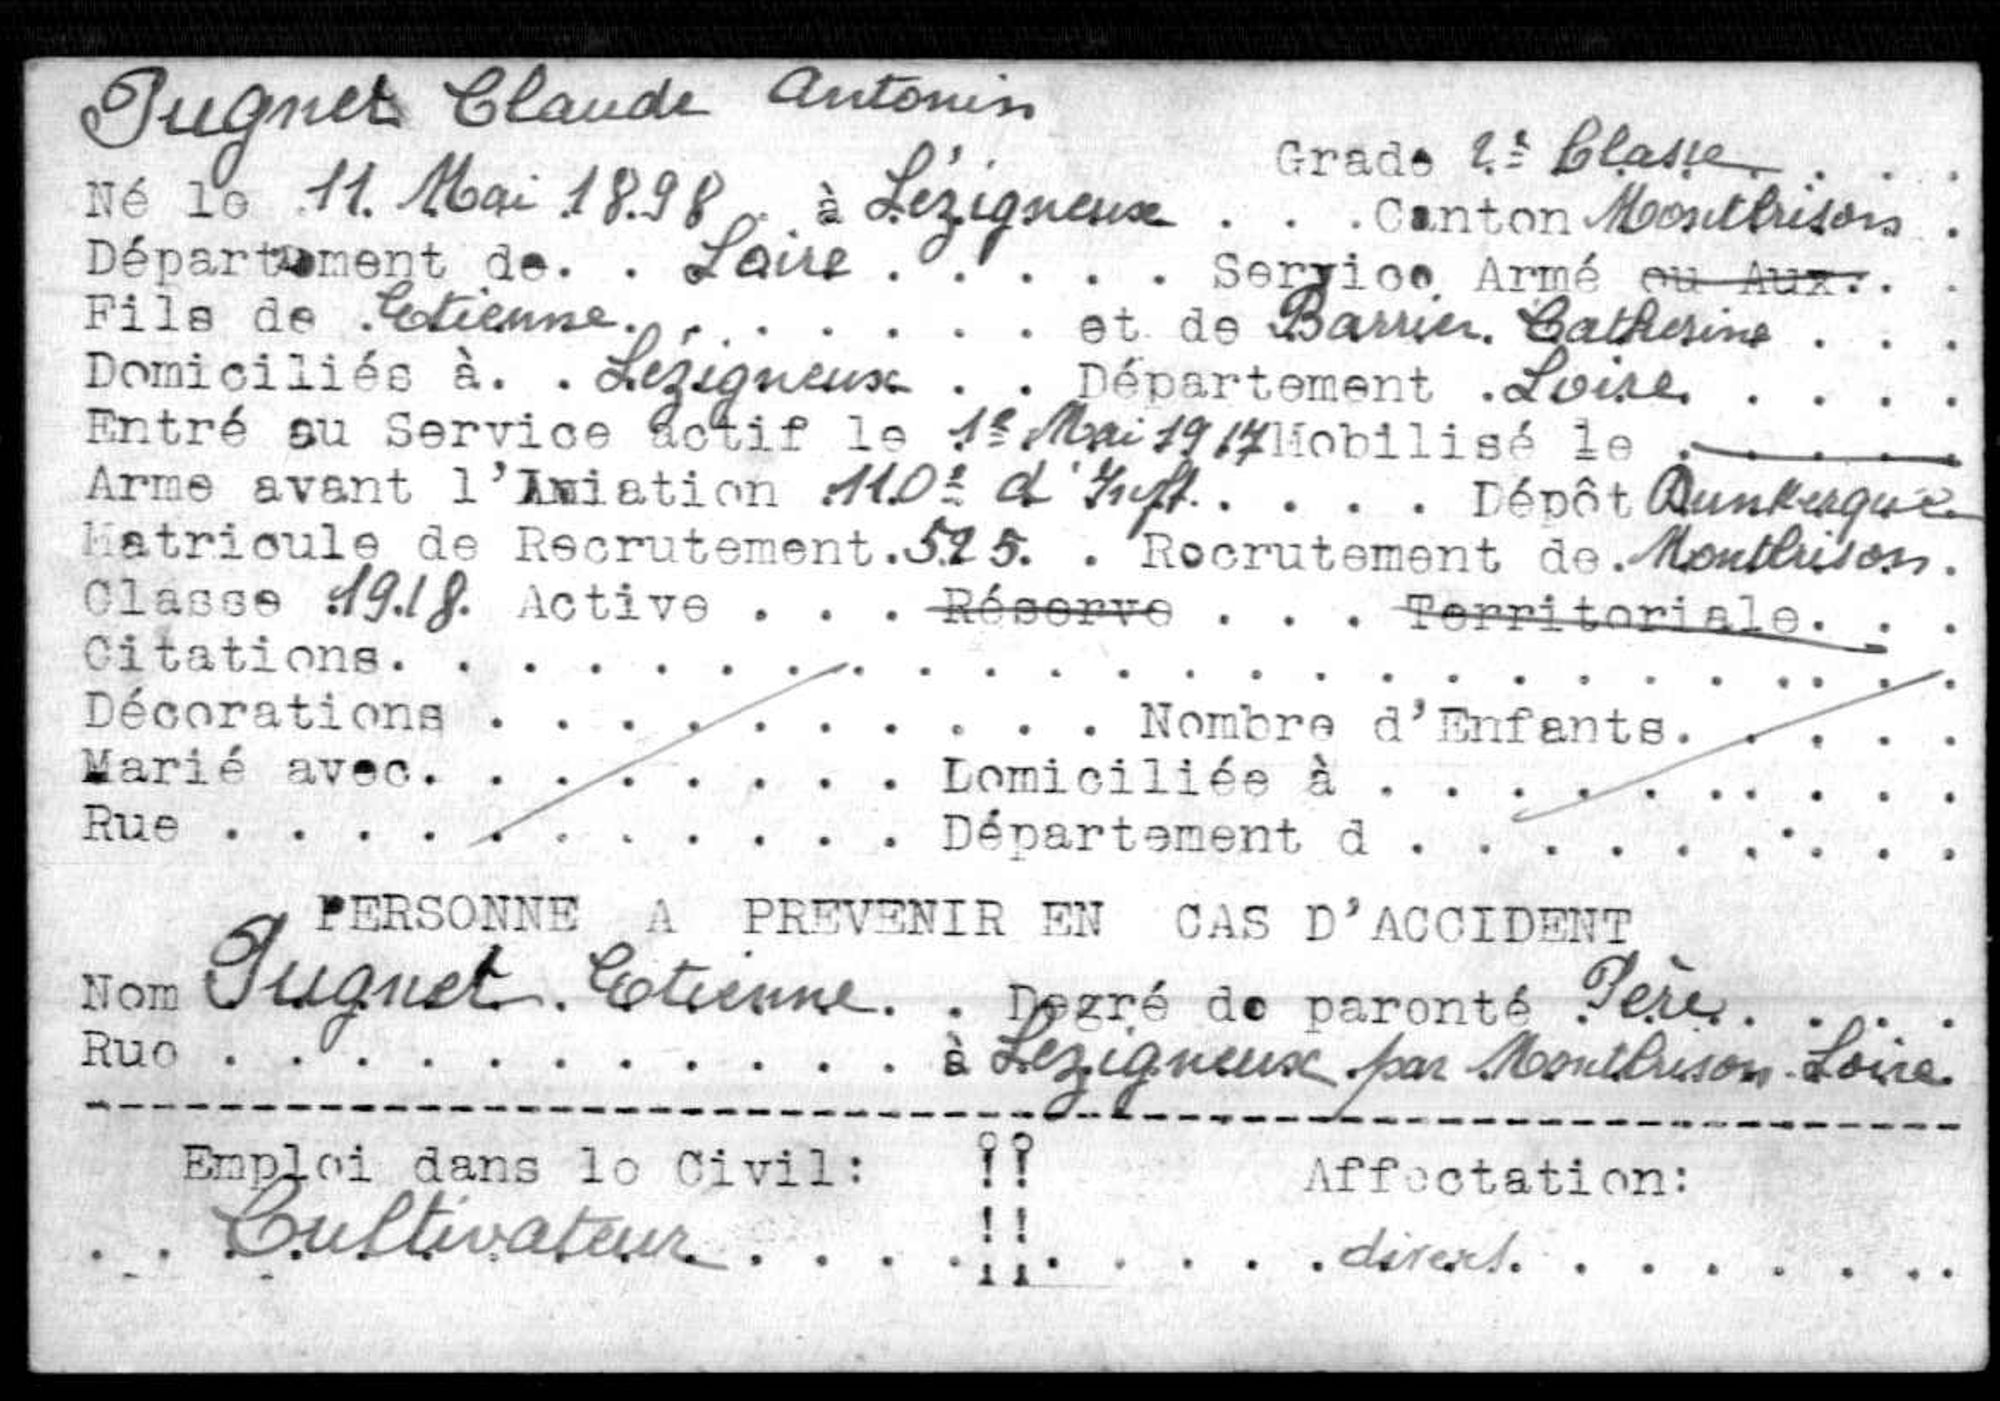 Pugnet Claude Antonin
Grade 2e Classe . . .
Né le 11. Mai 1898 . à Lézigneux . . . Canton Montbrison .
Département de. . Loire . . . . . Service Armé ou Aux. . .
Fils de . Etienne. . . . . . . . et de Barrier. Catherine . . .
Domiciliés à. . Lézigneux . . Département . Loire. . . . .
Entré au Service actif le 1e Mai 1917 Mobilisé le . . . . .
Arme avant l'Aviation 110e d'Inft. . . . . Dépôt Dunkerque
Matricule de Recrutement. 525. . Recrutement de. Montbrison.
Classe 1918. Active . . . Réserve . . . Territoriale. . .
Citations. . . . . . . . . . . . . . . . . . . . . . . . . . . .
Décorations . . . . . . . . . . . Nombre d'Enfants. . . . . .
Marié avec. . . . . . . . . Domiciliée à . . . . . . . . . . .
Rue . . . . . . . . . . . . . Département d . . . . . . . . . .
PERSONNE A PREVENIR EN CAS D'ACCIDENT
Nom Pugnet . Etienne. . Degré de parenté . Père. . . . .
Rue . . . . . . . . . . . . . à Lezigneux par Montbrison. Loire.
Emploi dans le Civil: !! Affectation:
!!
. . Cultivateur . . . . !! . . . . . divers. . . . . . . . .